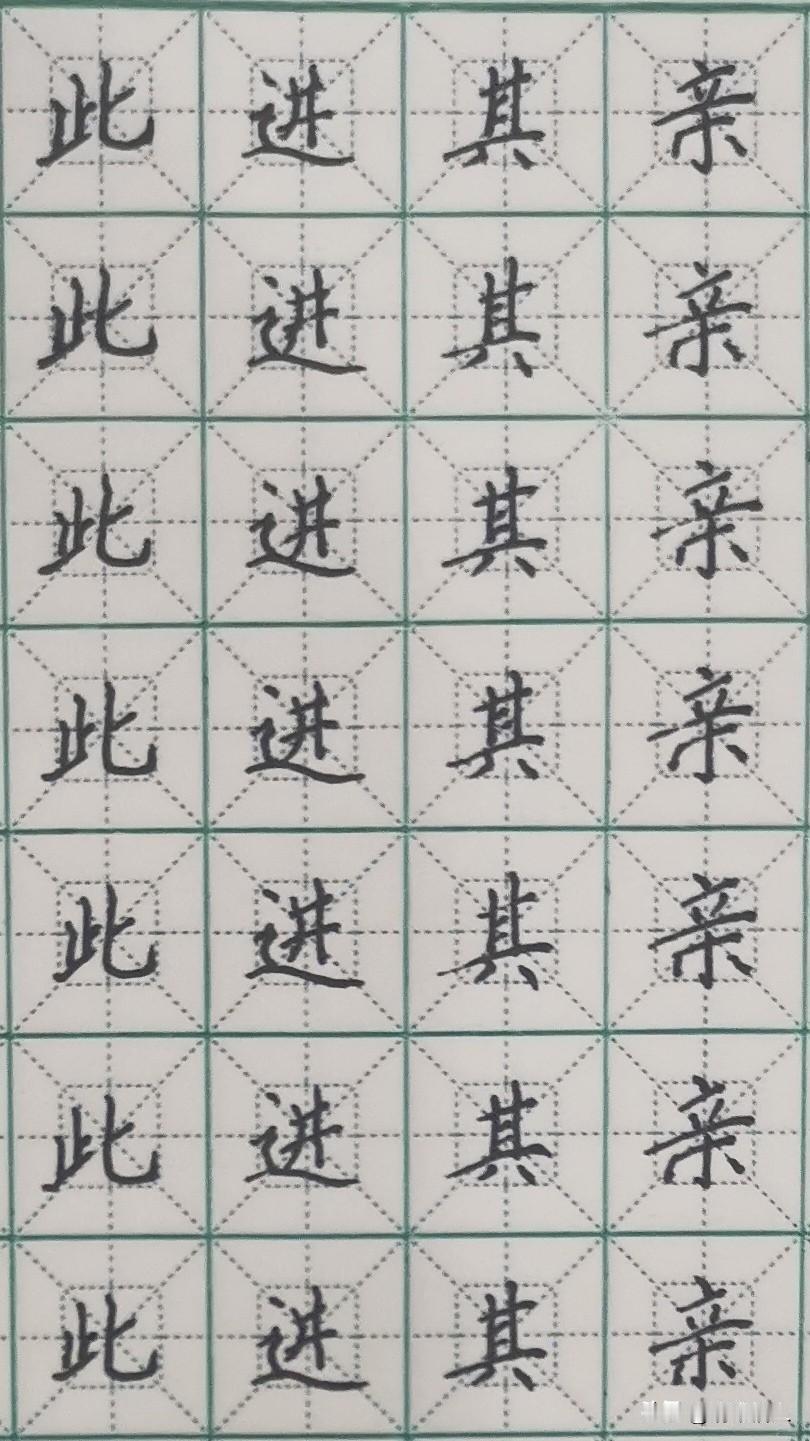 此进其亲
此进其亲
此进其亲
此进其亲
此进其亲
此进其亲
此进其亲